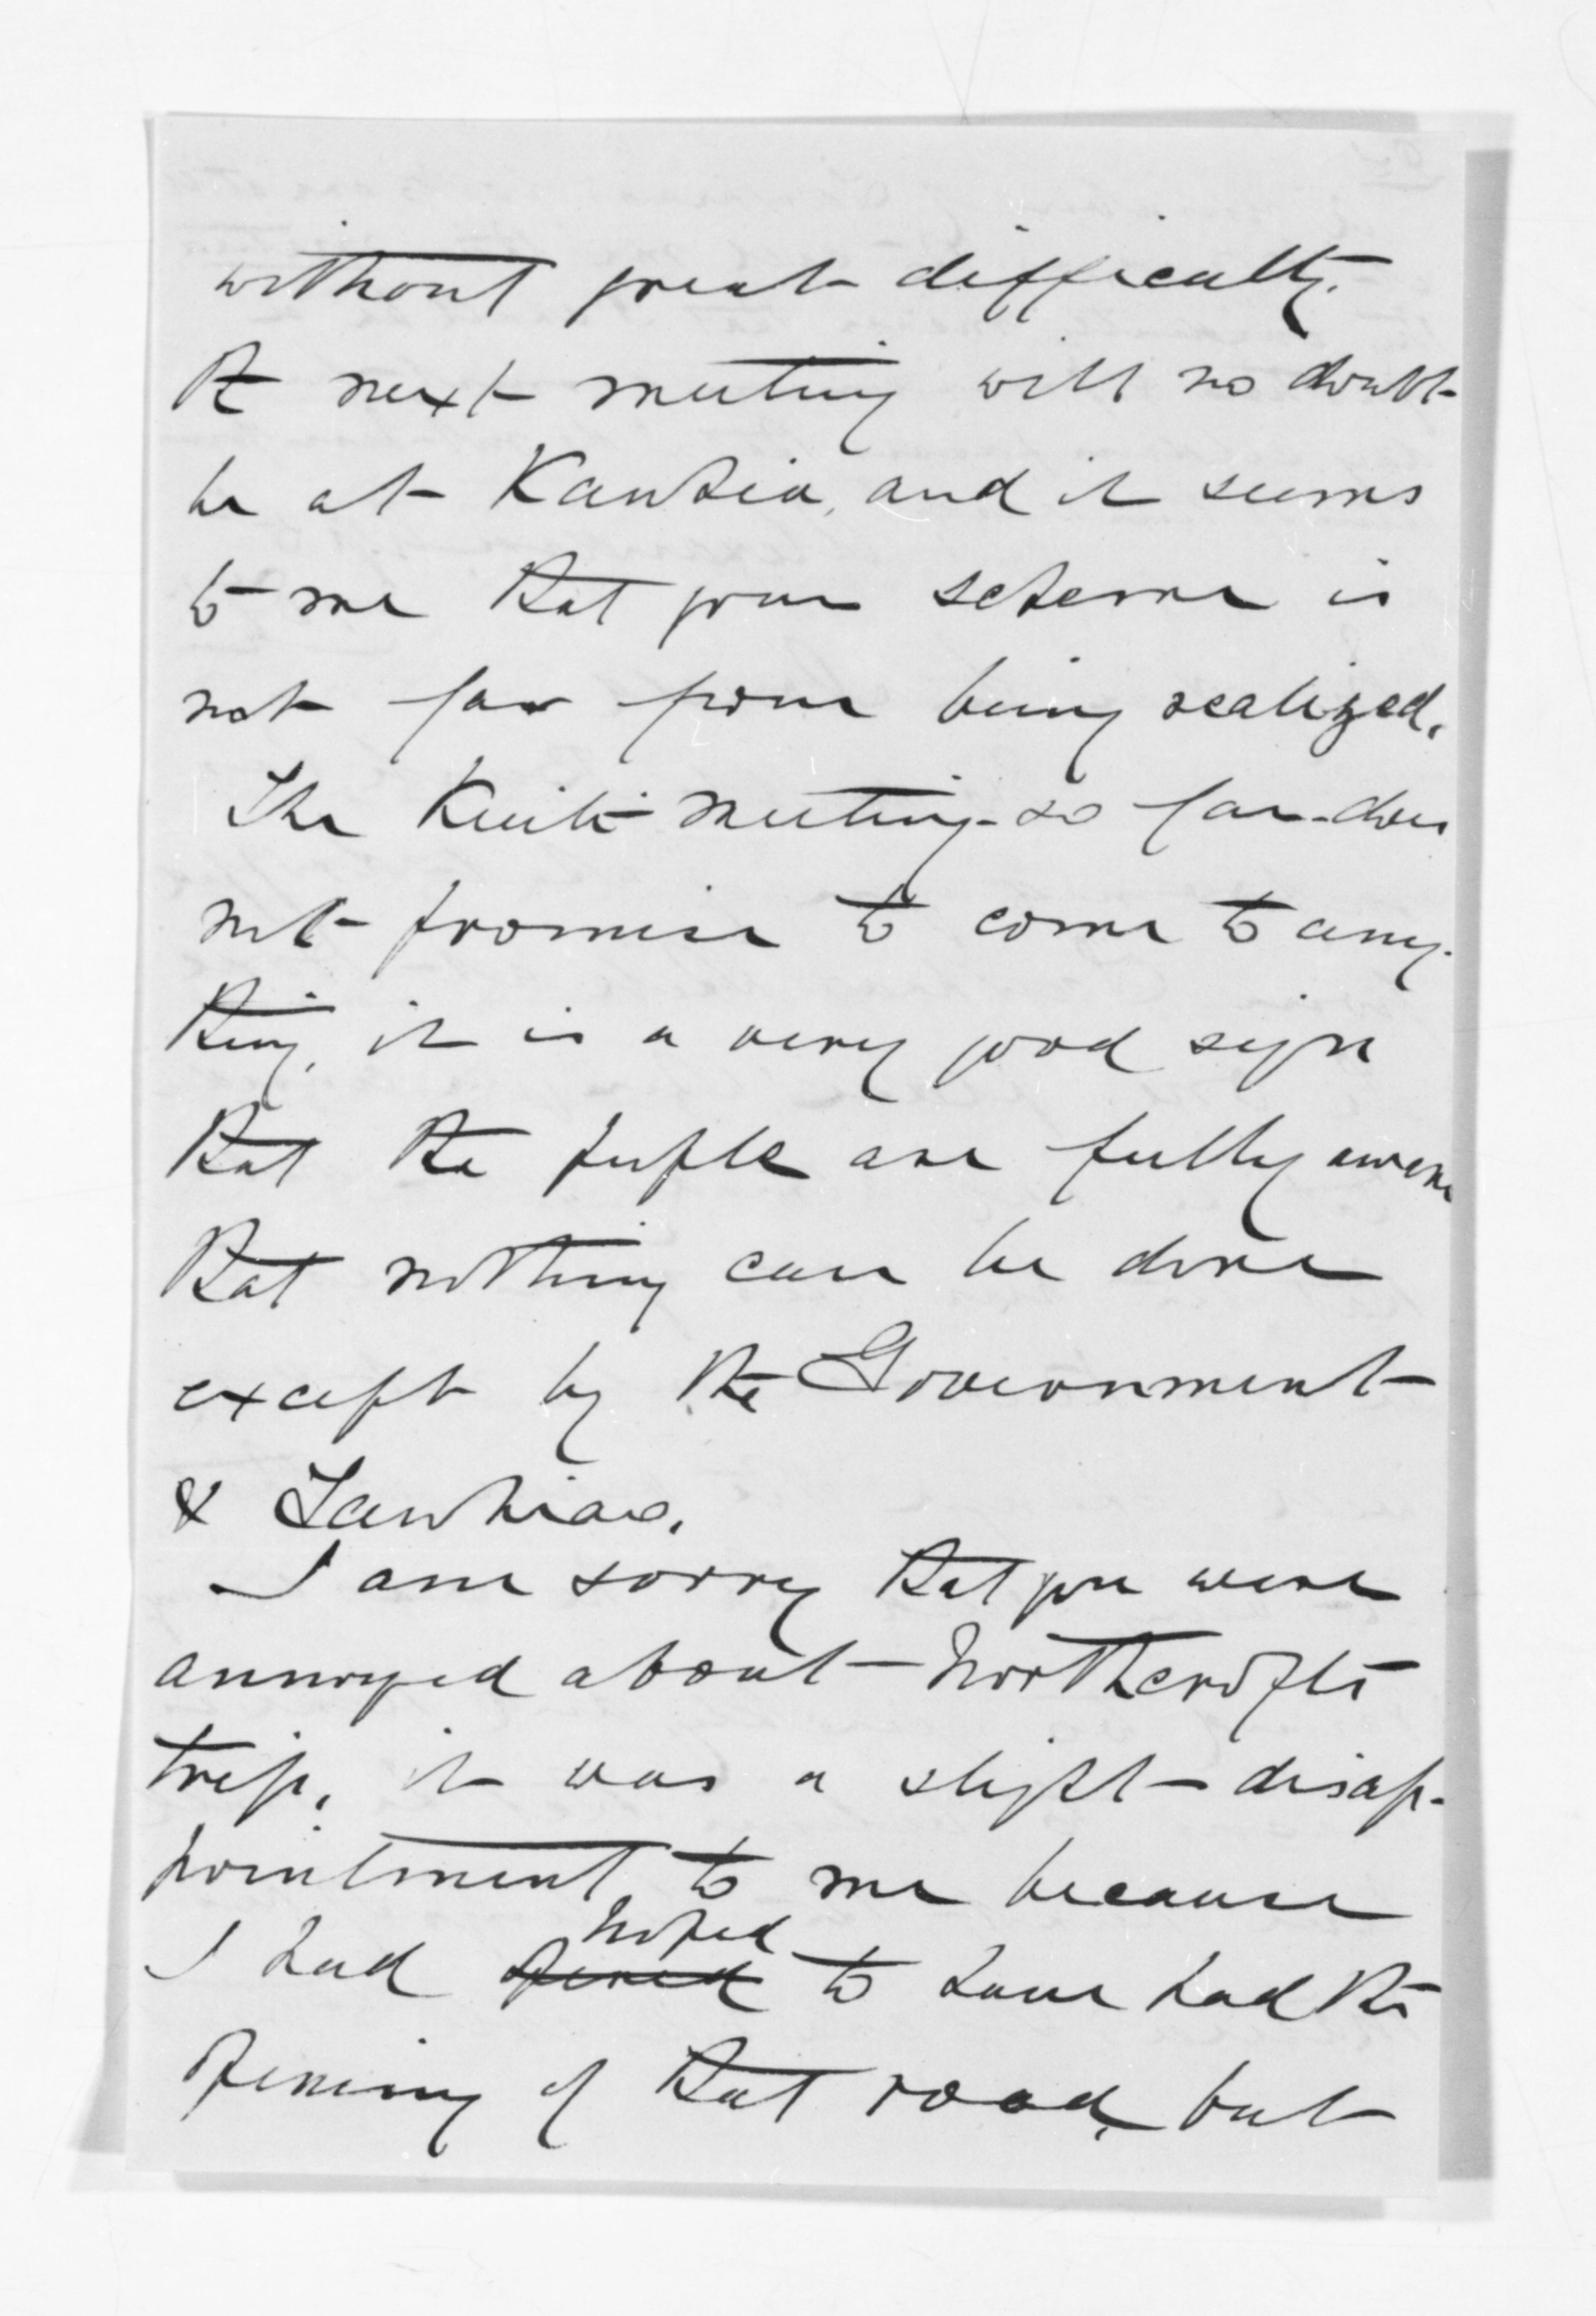 without great difficulty.
The next meeting will no doubt
be at Kawhia, and it seems
to me that your scheme is
not far from being realized.
The Kuiti meeting so far does
not promise to come to any-
thing, it is a very good sign
that the people are fully aware
that nothing can be done
except by the Government
& Tawhiao.
I am sorry that you were
annoyed about Northcrofts
trip, it was a slight disap-
pointment to me because
hoped
I had opened to have had the
opening of that road, but